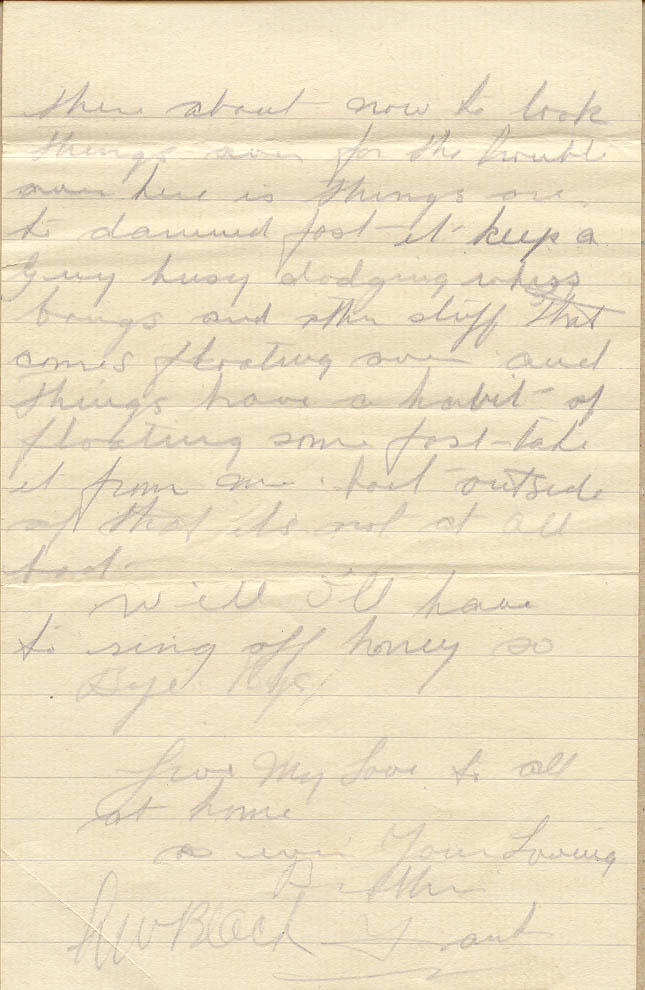 there about now to look
things over for the trouble
over here is things are
to damned fast it keep a
Guy busy dodging whiss
bangs and other stuff that
comes floating over and
things have a habit of
floating some fast take
it from me. but outside
of that its not at all
bad.
Well I'll have
to sing off honey so
Bye Bye
Give My Love to all
at home
as ever Your Loving
Brother
RW Black Grant